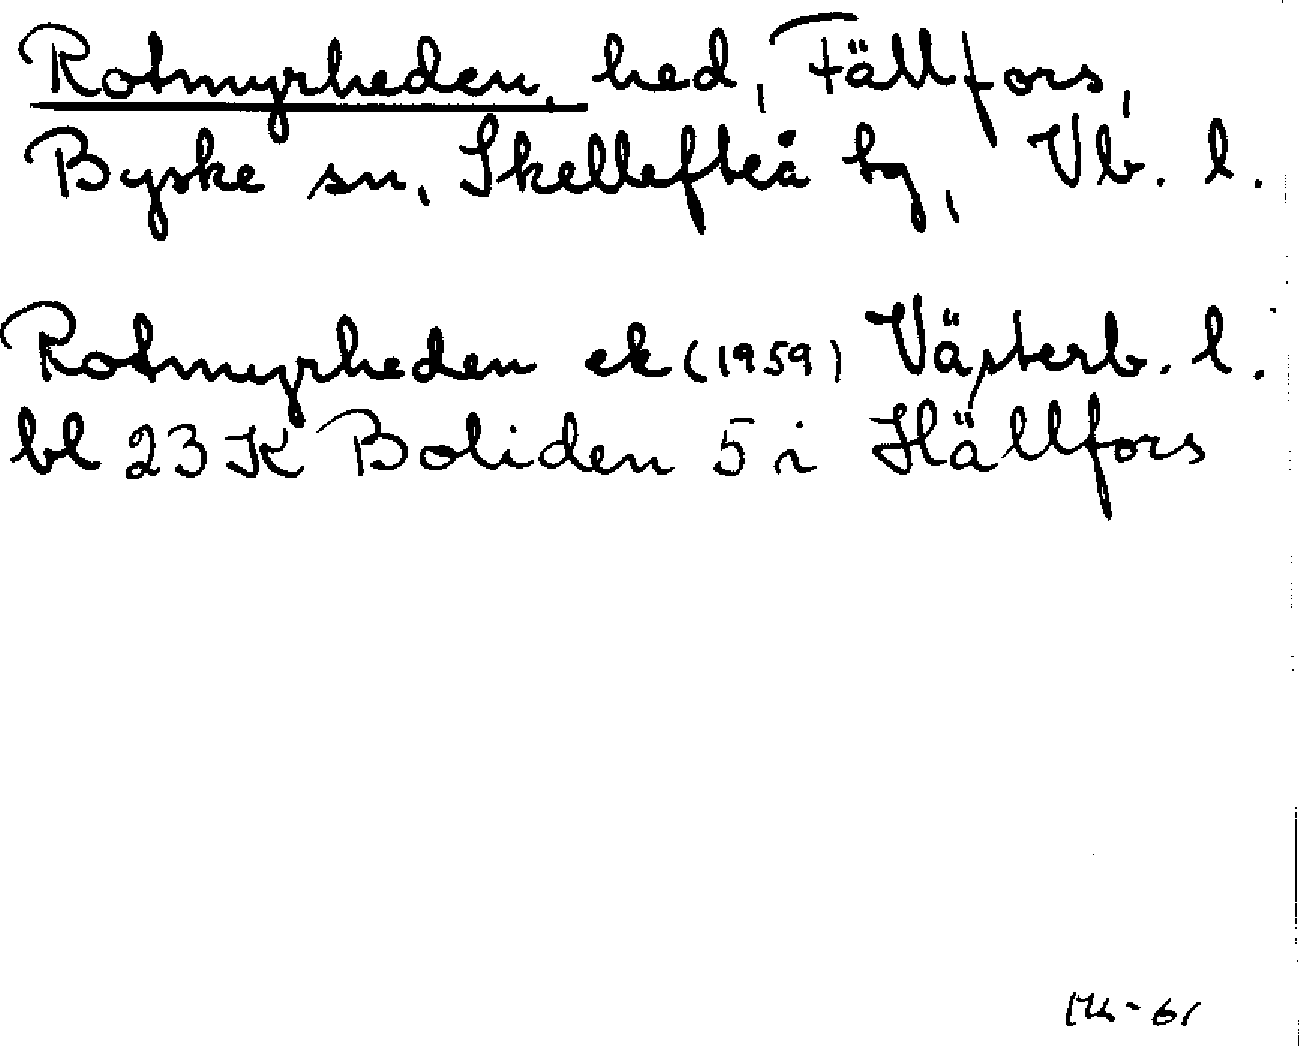 Rotmyrheden, hed, Fällfors,
Byske sn, Skellefteå tg, Vb. l.
Rotmyrheden ek (1959) Västerb. l.
bl 23 K Boliden 5 i Hällfors